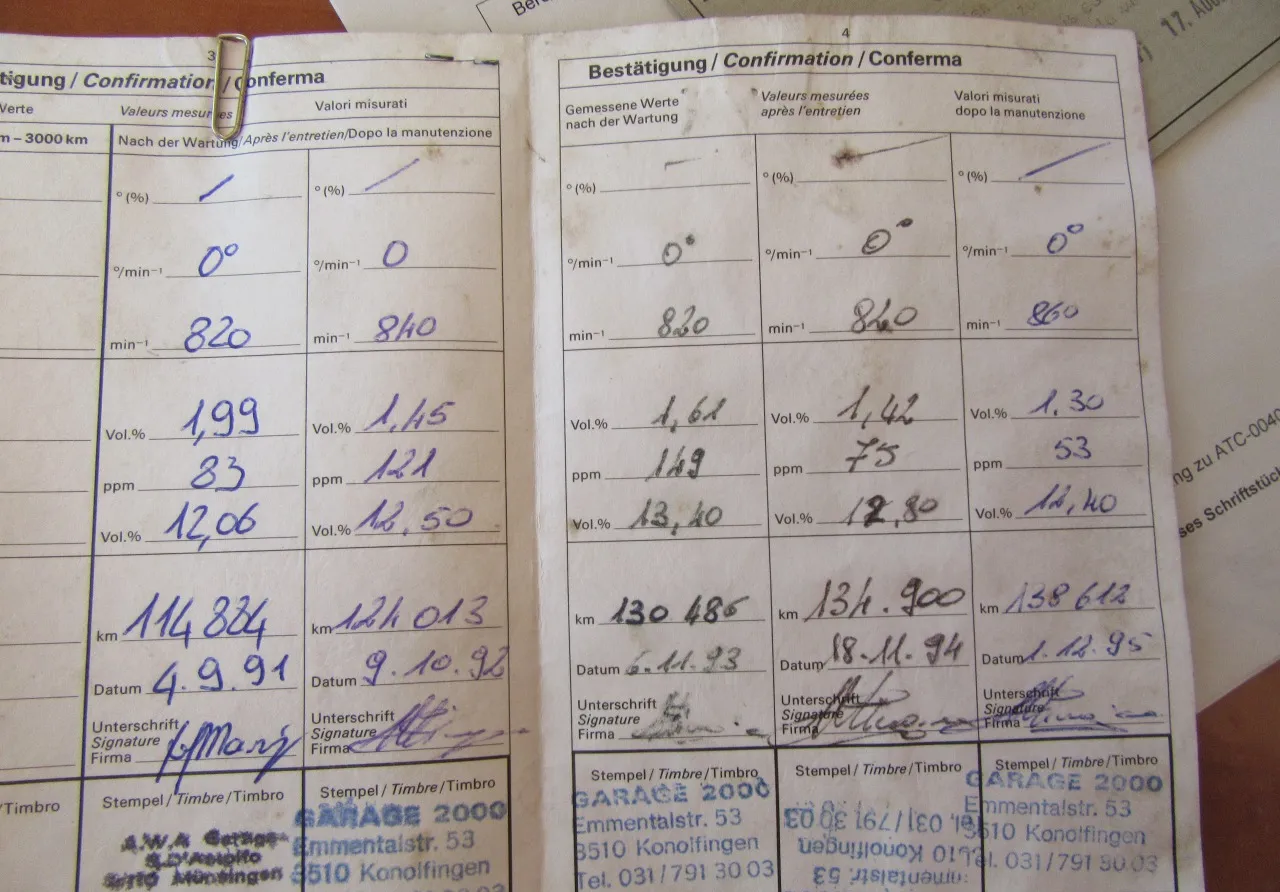 Ber
17. Aug
3
tigung / Confirmation / Conferma
Werte
Valeurs mesurées
Valori misurati
m – 3000 km
Nach der Wartung/Après l'entretien/Dopo la manutenzione
° (%)
° (%)
°/min⁻¹ 0°
°/min⁻¹ 0
min⁻¹ 820
min⁻¹ 840
Vol.% 1,99
Vol.% 1,45
ppm 83
ppm 121
Vol.% 12,06
Vol.% 12,50
km 114 884
km 124 013
Datum 4.9.91
Datum 9.10.92
Unterschrift
Signature
Firma
Unterschrift
Signature
Firma
/Timbro
Stempel / Timbre / Timbro
A.W.A Garage
Münsingen
Stempel / Timbre / Timbro
GARAGE 2000
Emmentalstr. 53
3510 Konolfingen
4
Bestätigung / Confirmation / Conferma
Gemessene Werte
nach der Wartung
Valeurs mesurées
après l'entretien
Valori misurati
dopo la manutenzione
° (%)
° (%)
° (%)
°/min⁻¹ 0°
°/min⁻¹ 0°
°/min⁻¹ 0°
min⁻¹ 820
min⁻¹ 840
min⁻¹ 860
Vol.% 1,61
Vol.% 1,42
Vol.% 1.30
ppm 149
ppm 75
ppm 53
Vol.% 13,40
Vol.% 12,80
Vol.% 12,40
km 130 486
km 134.900
km 138 612
Datum 6.11.93
Datum 18.11.94
Datum 1.12.95
Unterschrift
Signature
Firma
Unterschrift
Signature
Firma
Unterschrift
Signature
Firma
Stempel / Timbre / Timbro
GARAGE 2000
Emmentalstr. 53
3510 Konolfingen
Tel. 031/791 30 03
Stempel / Timbre / Timbro
Tel. 031/791 30 03
3510 Konolfingen
Emmentalstr. 53
Stempel / Timbre / Timbro
GARAGE 2000
Emmentalstr. 53
3510 Konolfingen
Tel. 031/791 30 03
ng zu ATC-0040
ses Schriftstück